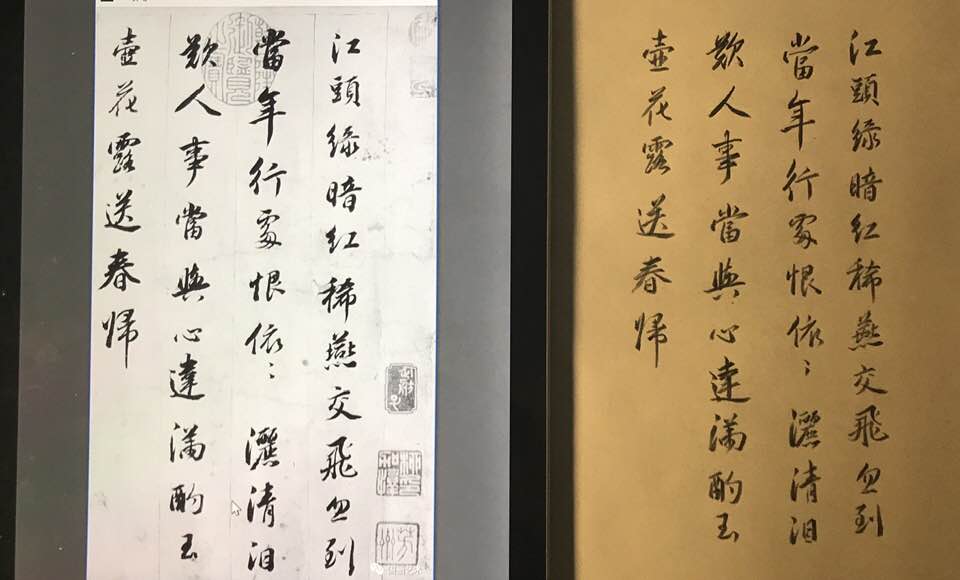 江頭綠暗紅稀燕交飛忽到
當年行處恨依〻灑清泪
歎人事當與心違滿酌玉
壺花露送春歸
江頭綠暗紅稀燕交飛忽到
當年行處恨依〻灑清泪
歎人事當與心違滿酌玉
壺花露送春歸